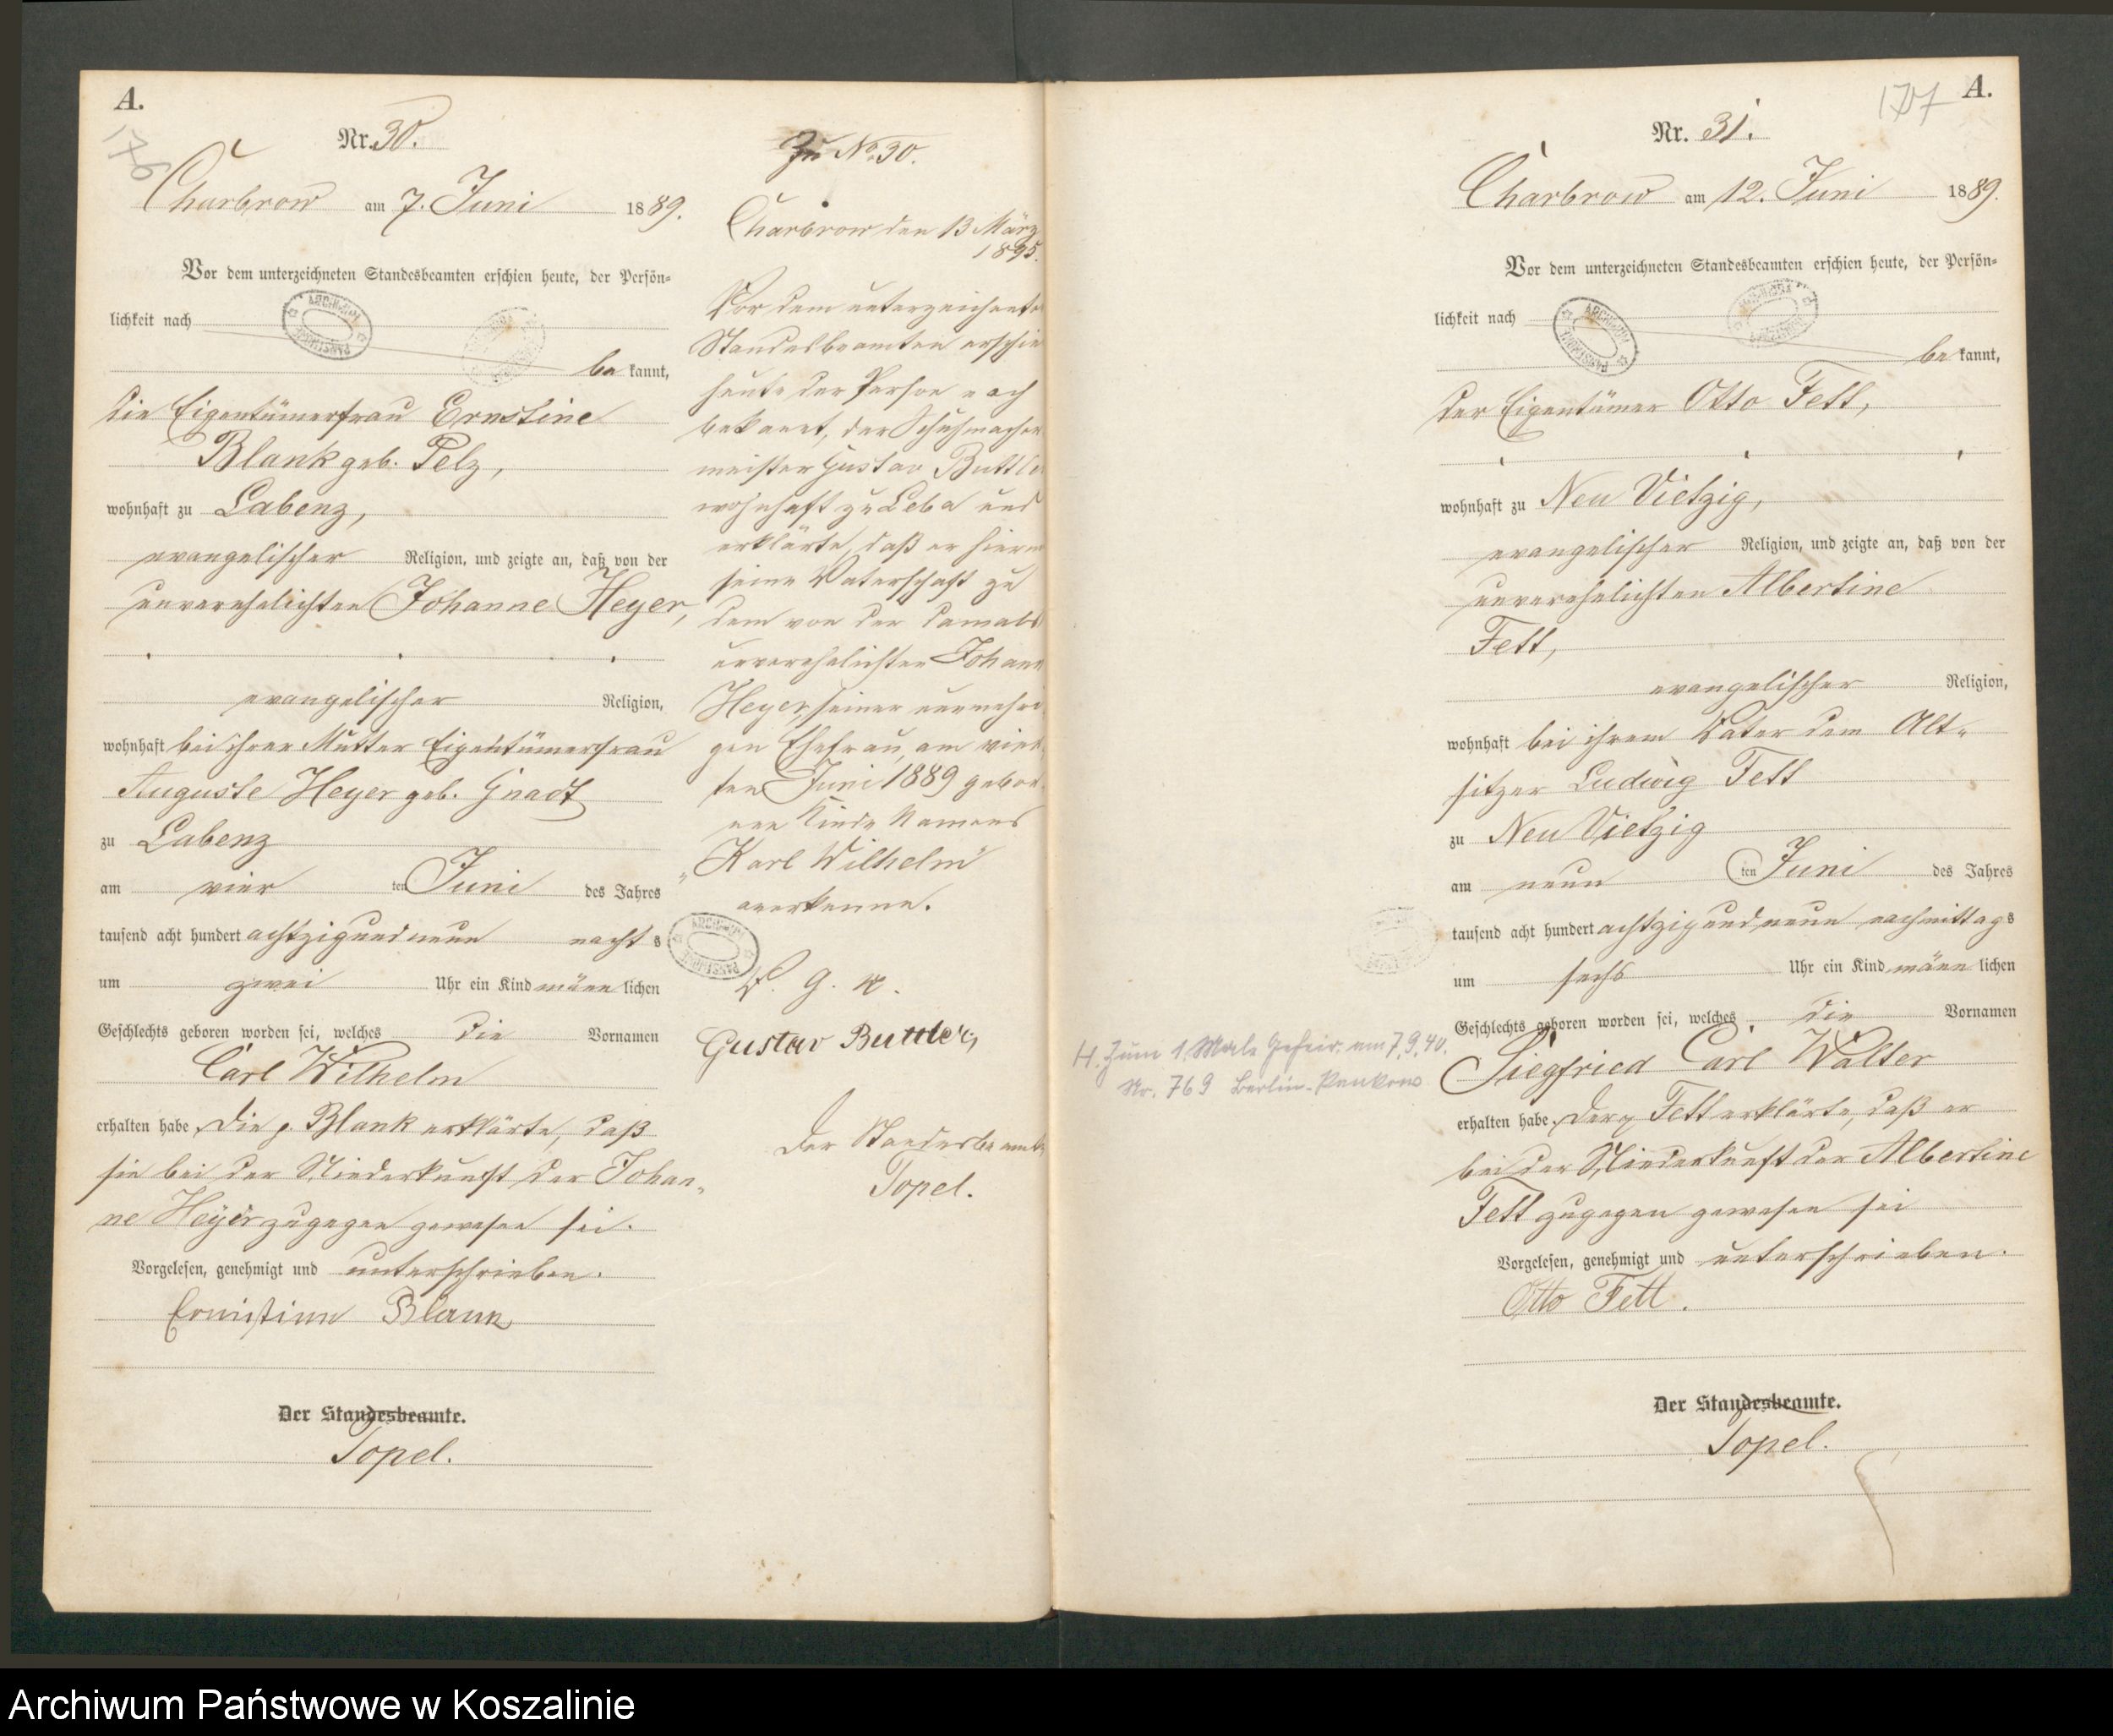 A.
176
Nr. 30.
Charbrow am 7. Juni 1889.
Vor dem unterzeichneten Standesbeamten erschien heute, der Persön=
lichkeit nach
be kannt,
die Eigentümerfrau Ernstine
Blank geb. Pelz,
wohnhaft zu Labenz,
evangelischer Religion, und zeigte an, daß von der
unverehelichten Johanne Heyer,
evangelischer Religion,
wohnhaft bei ihrer Mutter Eigentümerfrau
Auguste Heyer geb. Gnadt
zu Labenz
am vier ten Juni des Jahres
tausend acht hundert achtzig und neun nacht s
um zwei Uhr ein Kind männ lichen
Geschlechts geboren worden sei, welches die Vornamen
Carl Wilhelm
erhalten habe. Die p. Blank erklärte, daß
sie bei der Niederkunft der Johan-
ne Heyer zugegen gewesen sei.
Vorgelesen, genehmigt und unterschrieben.
Ernistine Blank
Der Standesbeamte.
Topel.
Zu No. 30.
Charbrow den 13 März
1895.
Vor dem unterzeichnete
Standesbeamten erschie
heute der Person nach
bekannt, der Schuhmacher
meister Gustav Buttle
wohnhaft zu Leba und
erklärte, daß er hierm
seine Vaterschaft zu
dem von der damals
unverehelichten Johann
Heyer, seiner nunmehri
gen Ehefrau, am vier
ten Juni 1889 gebor
nen Kinde Namens
"Karl Wilhelm"
anerkenne.
V. g. u.
Gustav Buttler,
Der Standesbeamte
Topel.
A.
177
Nr. 31.
Charbrow am 12. Juni 1889.
Vor dem unterzeichneten Standesbeamten erschien heute, der Persön=
lichkeit nach
be kannt,
der Eigentümer Otto Fett,
wohnhaft zu Neu Vietzig,
evangelischer Religion, und zeigte an, daß von der
unverehelichten Albertine
Fett,
evangelischer Religion,
wohnhaft bei ihrem Vater dem Alt-
sitzer Ludwig Fett
zu Neu Vietzig
am neun ten Juni des Jahres
tausend acht hundert achtzig und neun nachmittag s
um sechs Uhr ein Kind männ lichen
Geschlechts geboren worden sei, welches die Vornamen
Siegfried Carl Walter
erhalten habe. Der p. Fett erklärte, daß er
bei der Niederkunft der Albertine
Fett zugegen gewesen sei
Vorgelesen, genehmigt und unterschrieben.
Otto Fett.
Der Standesbeamte.
Topel.
H. Zum 1. Male Geheir. am 7.9.40.
Nr. 769 Berlin-Pankow
Archiwum Państwowe w Koszalinie